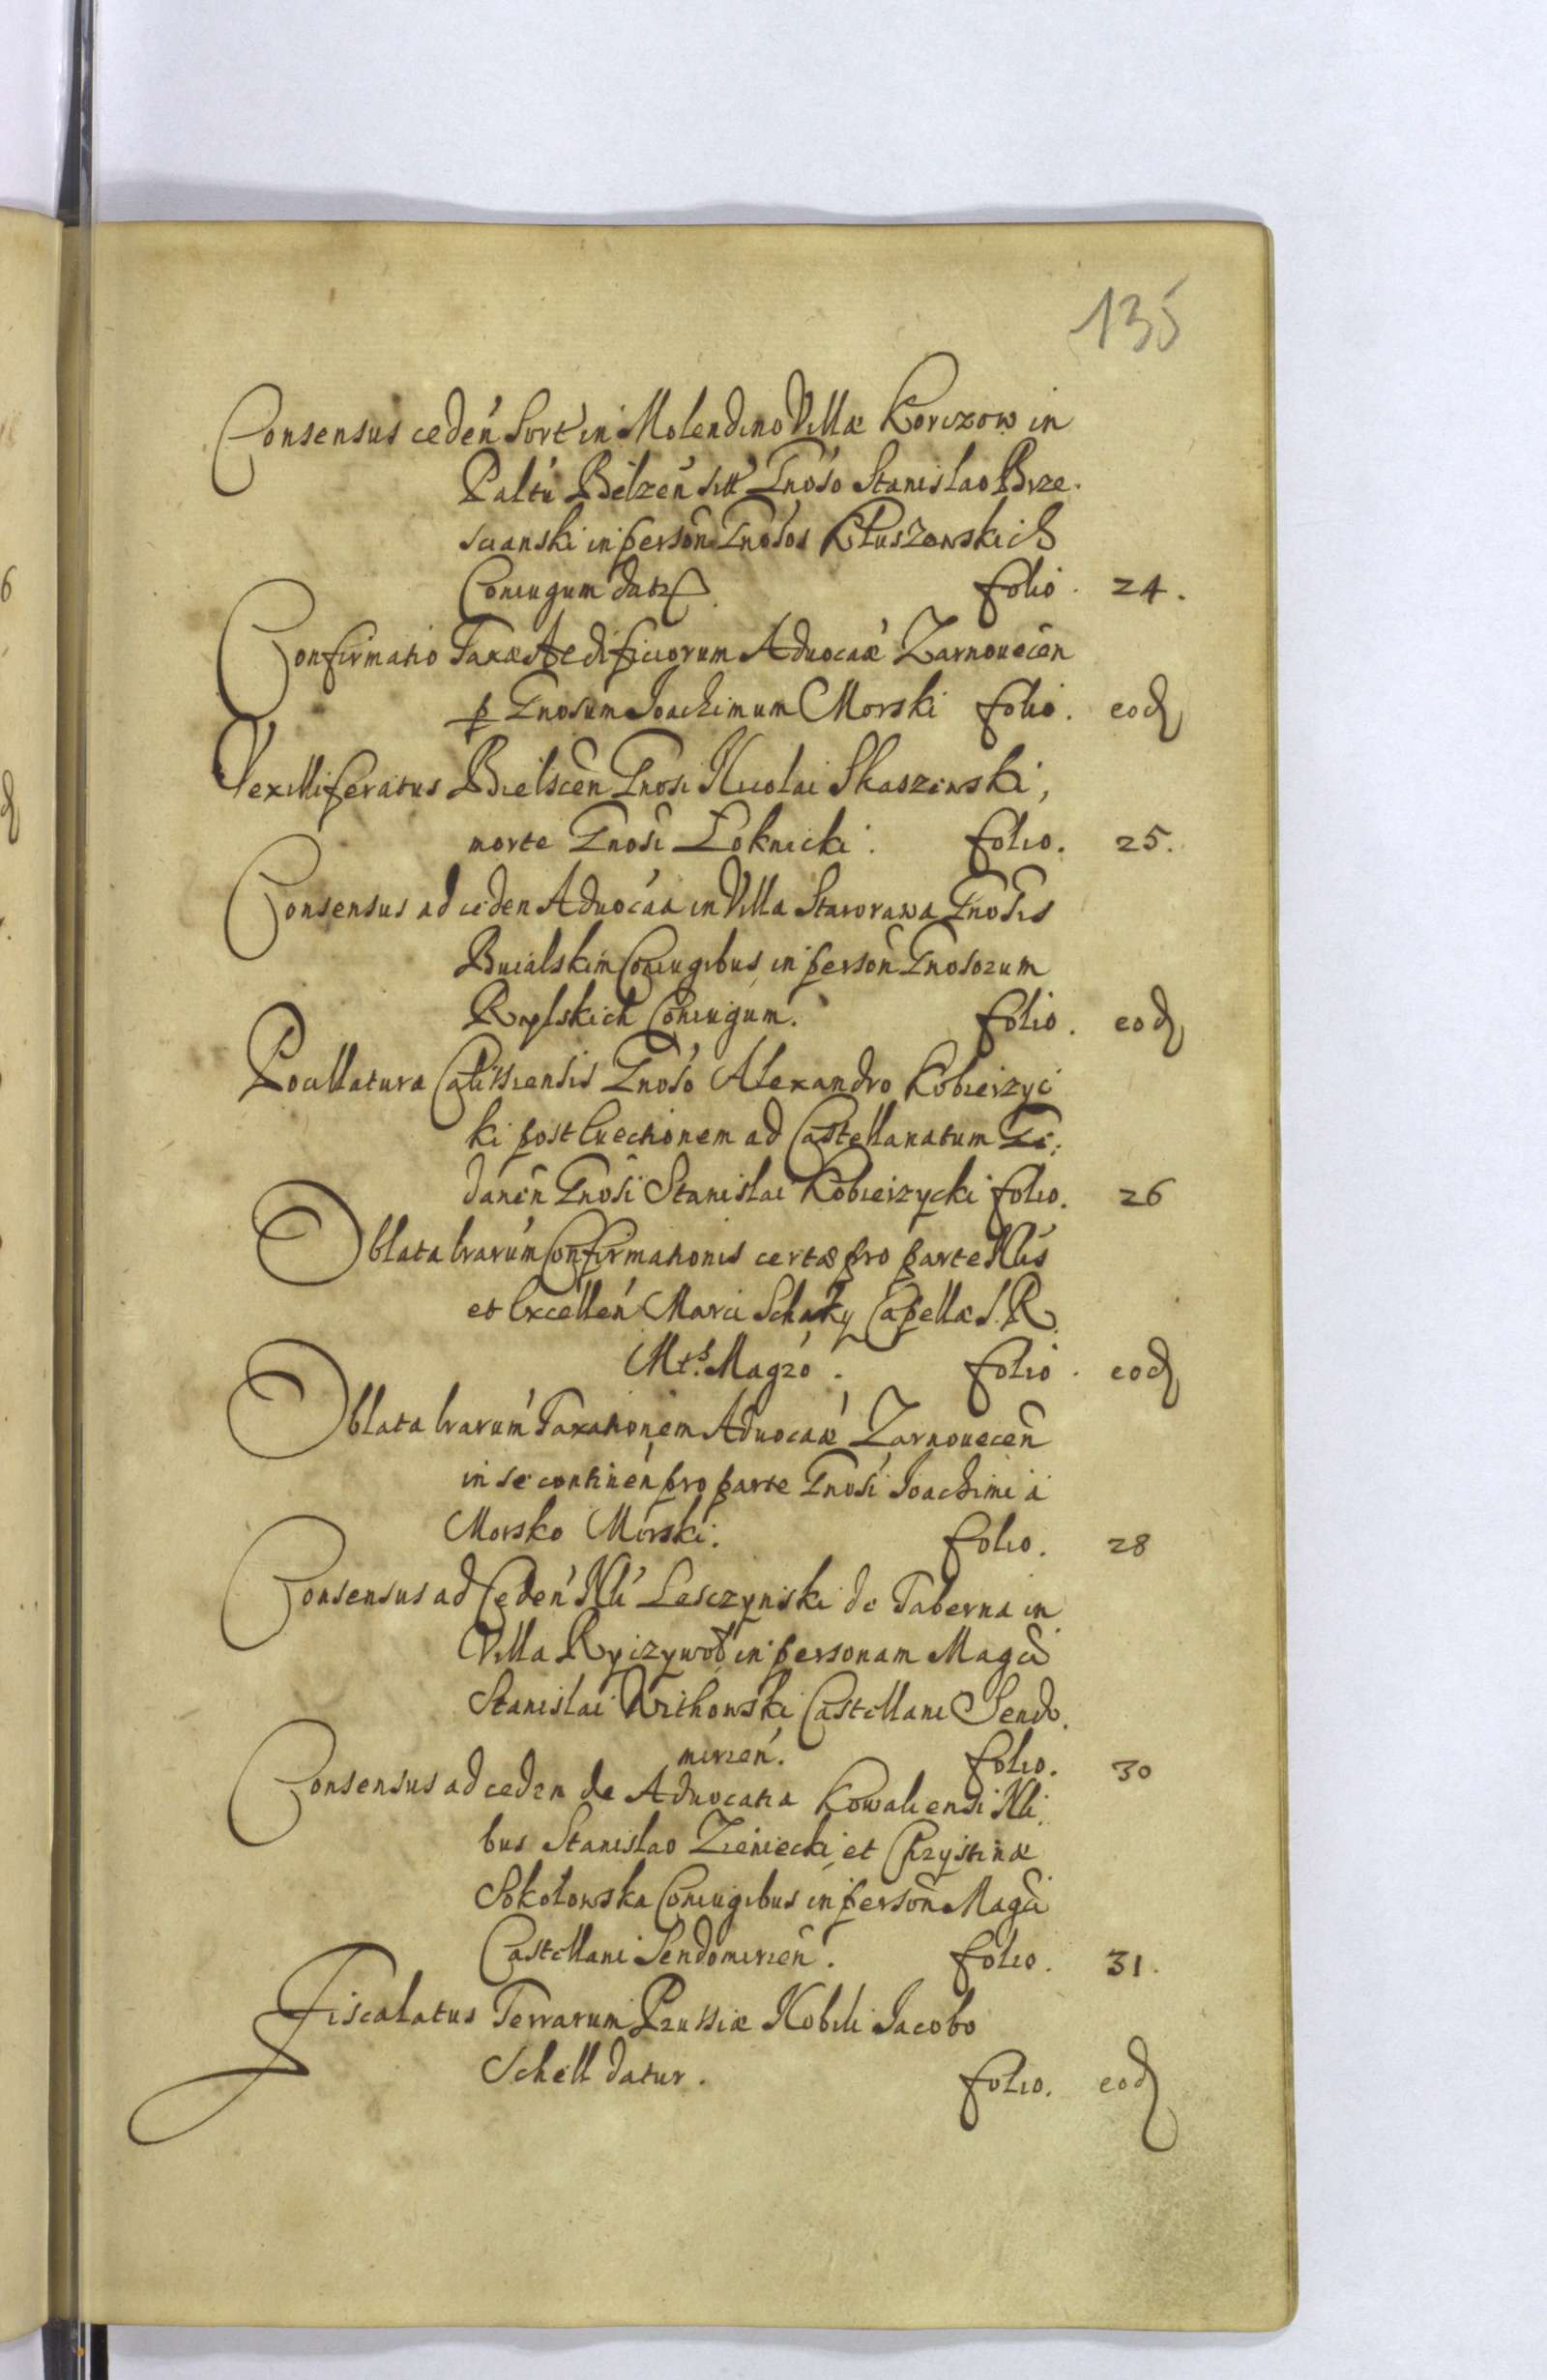 135
Consensus ceden Sort in Molendino Villæ Korczow in
Paltu Belzen sitt Gnoso Stanislao Brze-
scianski in person Gnosos Kluszewskich
Coniugum datr folio. 24.
Confirmatio Taxæ Aedificiorum Aduocaæ Zarnouecen
p Gnosum Joachimum Morski folio. eod
Vexilliferatus Bielscen Gnosi Nicolai Skaszewski,
morte Gnosi Loknicki. folio. 25.
Consensus ad ceden Aduocaa in Villa Starorawa Gnosis
Buialskim Coniugibus in person Gnosorum
Rylskich Coniugum. folio. eod
Pocillatura Calissiensis Gnoso Alexandro Kobierzyc
ki post Euectionem ad Castellanatum Ge:
danen Gnosi Stanislai Kobierzycki folio. 26
Oblata lrarum Confirmationis certæ pro parte Nlis
et Excellen Marci Schaky Capellæ S. R.
Mtis. Magro. folio. eod
Oblata lrarum Taxationem Aduocaæ Zarnouecen
in se continen pro parte Gnosi Joachimi a
Morsko Morski. folio. 28
Consensus ad Ceden Nli Lesczynski de Taberna in
Villa Ryczywol in personam Magci
Stanislai Withowski Castellani Sendo
mirien. folio. 30
Consensus ad ceden de Aduocatia Kowaliensi Nli
bus Stanislao Zieniecki et Chrystinæ
Sokolowska Coniugibus in person Magci
Castellani Sendomirien. folio. 31.
Fiscalatus Terrarum Prussiæ Nobili Jacobo
Schell datur. folio. eod